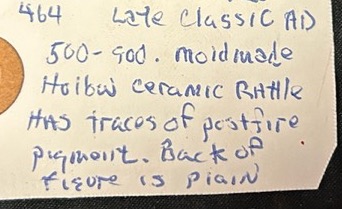 464 Late Classic AD
500-900. moldmade
Hoibas ceramic Rattle
HAS traces of postfire
pigment. Back of
figure is plain